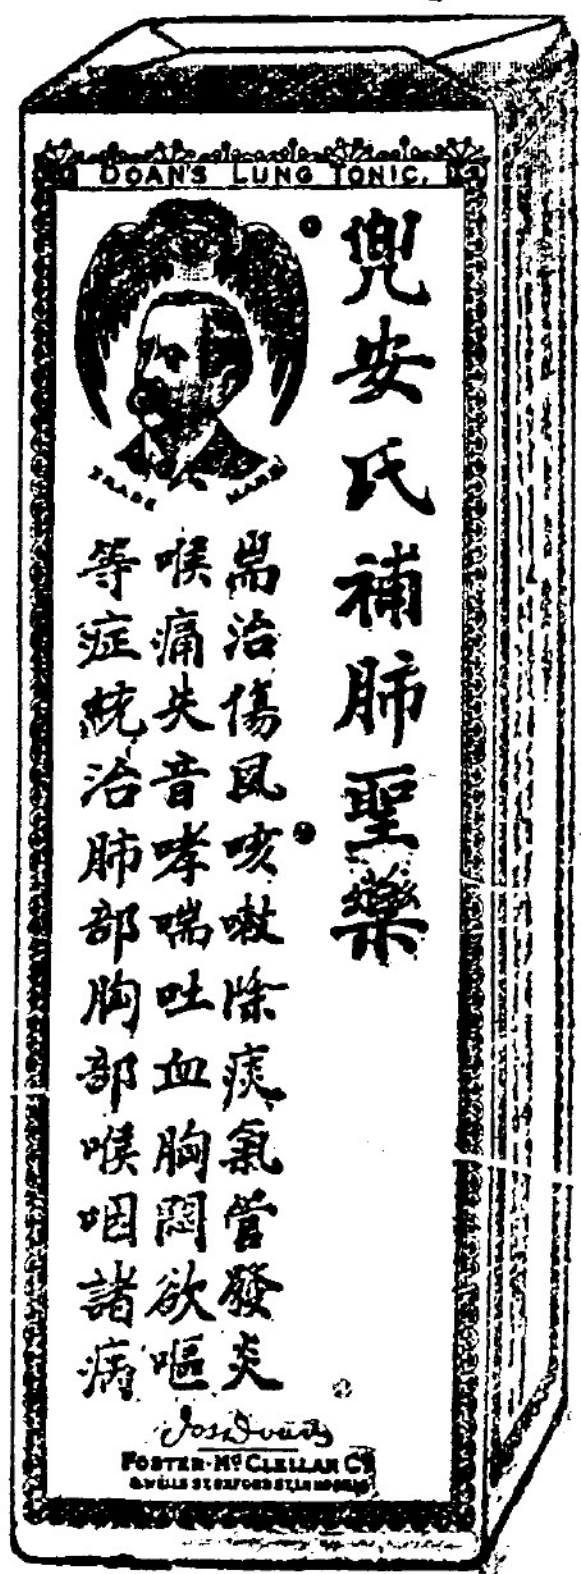 DOAN'S LUNG TONIC.
兜安氏補肺聖藥
TRADE MARK
耑治傷風咳嗽除痰氣管發炎
喉痛失音哮喘吐血胸悶欲嘔
等症統治肺部胸部喉咽諸病
Jas Doan
FOSTER-McCLELLAN Co
8 WELLS ST. OXFORD ST. LONDON